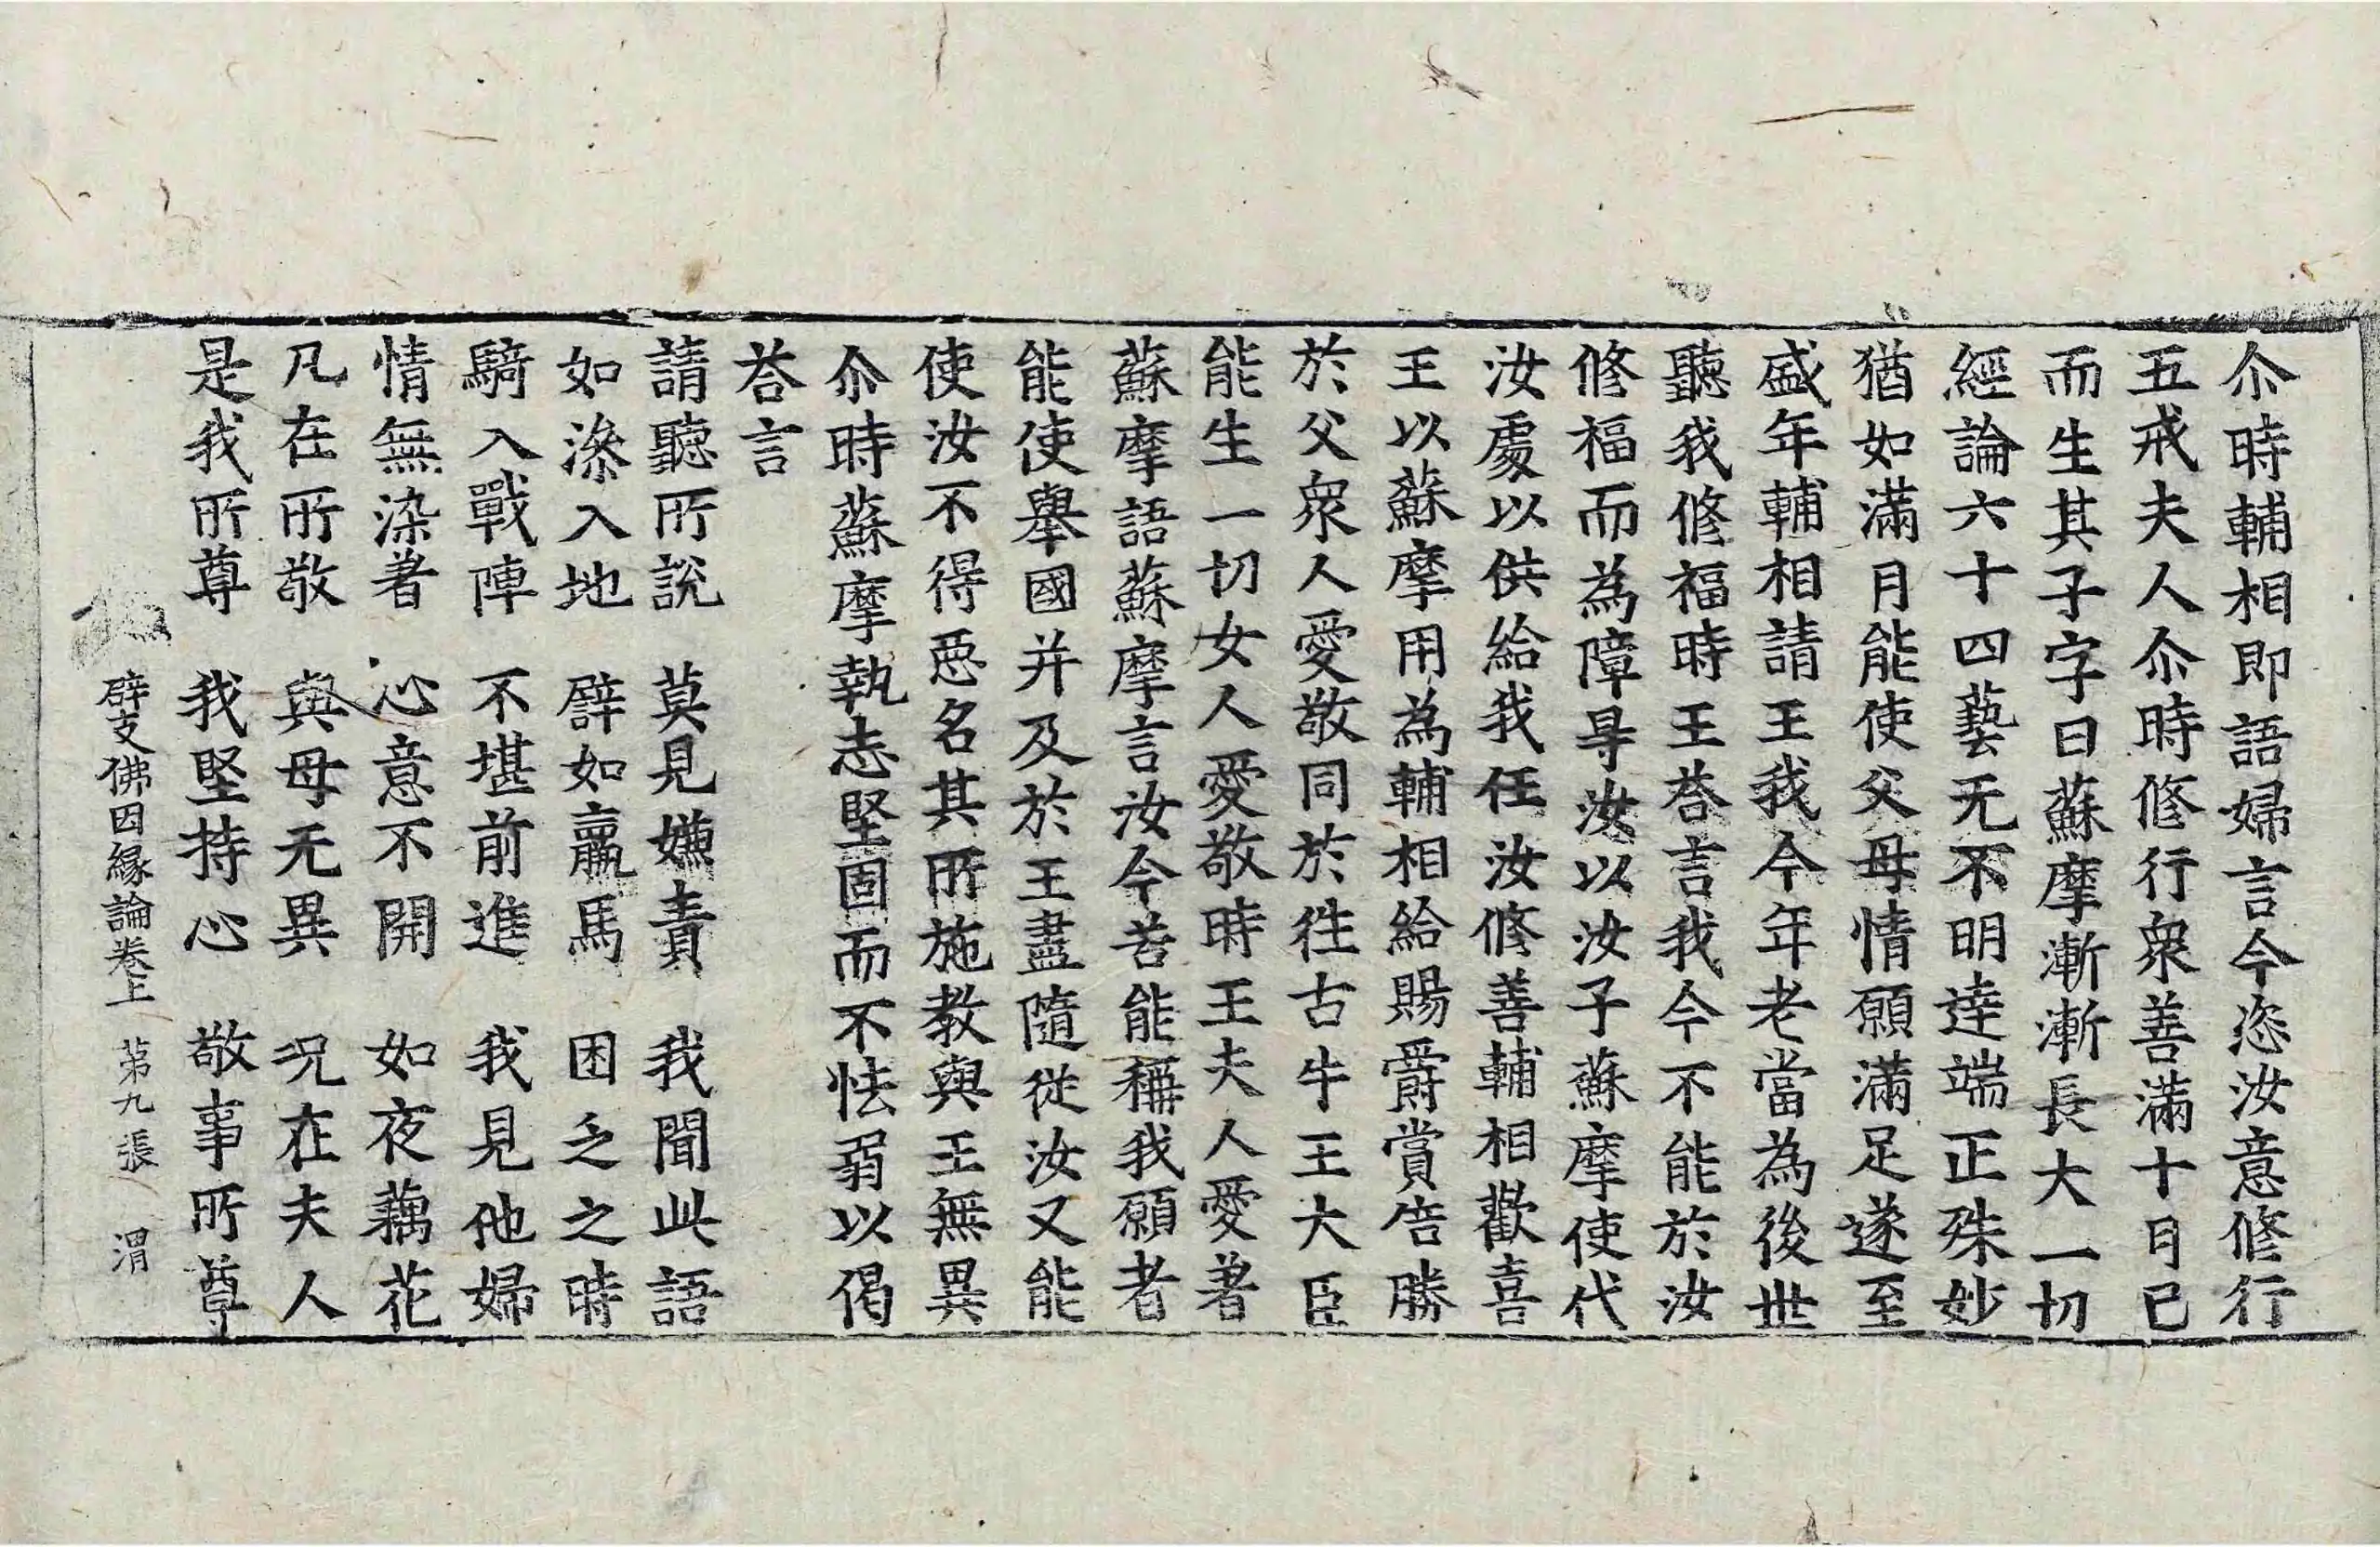 尒時輔相即語婦言今恣汝意修行
五戒夫人尒時修行衆善滿十月已
而生其子字曰蘇摩漸漸長大一切
經論六十四藝无不明達端正殊妙
猶如滿月能使父母情願滿足遂至
盛年輔相請王我今年老當為後世
聽我修福時王荅言我今不能於汝
修福而為障㝵汝以汝子蘇摩使代
汝處以供給我任汝修善輔相歡喜
王以蘇摩用為輔相給賜爵賞告勝
於父衆人愛敬同於往古牛王大臣
能生一切女人愛敬時王夫人愛著
蘇摩語蘇摩言汝今若能稱我願者
能使舉國并及於王盡隨從汝又能
使汝不得惡名其所施教與王無異
尒時蘇摩執志堅固而不怯弱以偈
荅言
請聽所說　莫見嫌責　我聞此語
如漆入地　譬如羸馬　困乏之時
騎入戰陣　不堪前進　我見他婦
情無染著　心意不開　如夜藕花
凡在所敬　與母无異　況在夫人
是我所尊　我堅持心　敬事所尊
辟支佛因緣論卷上　第九張　渭